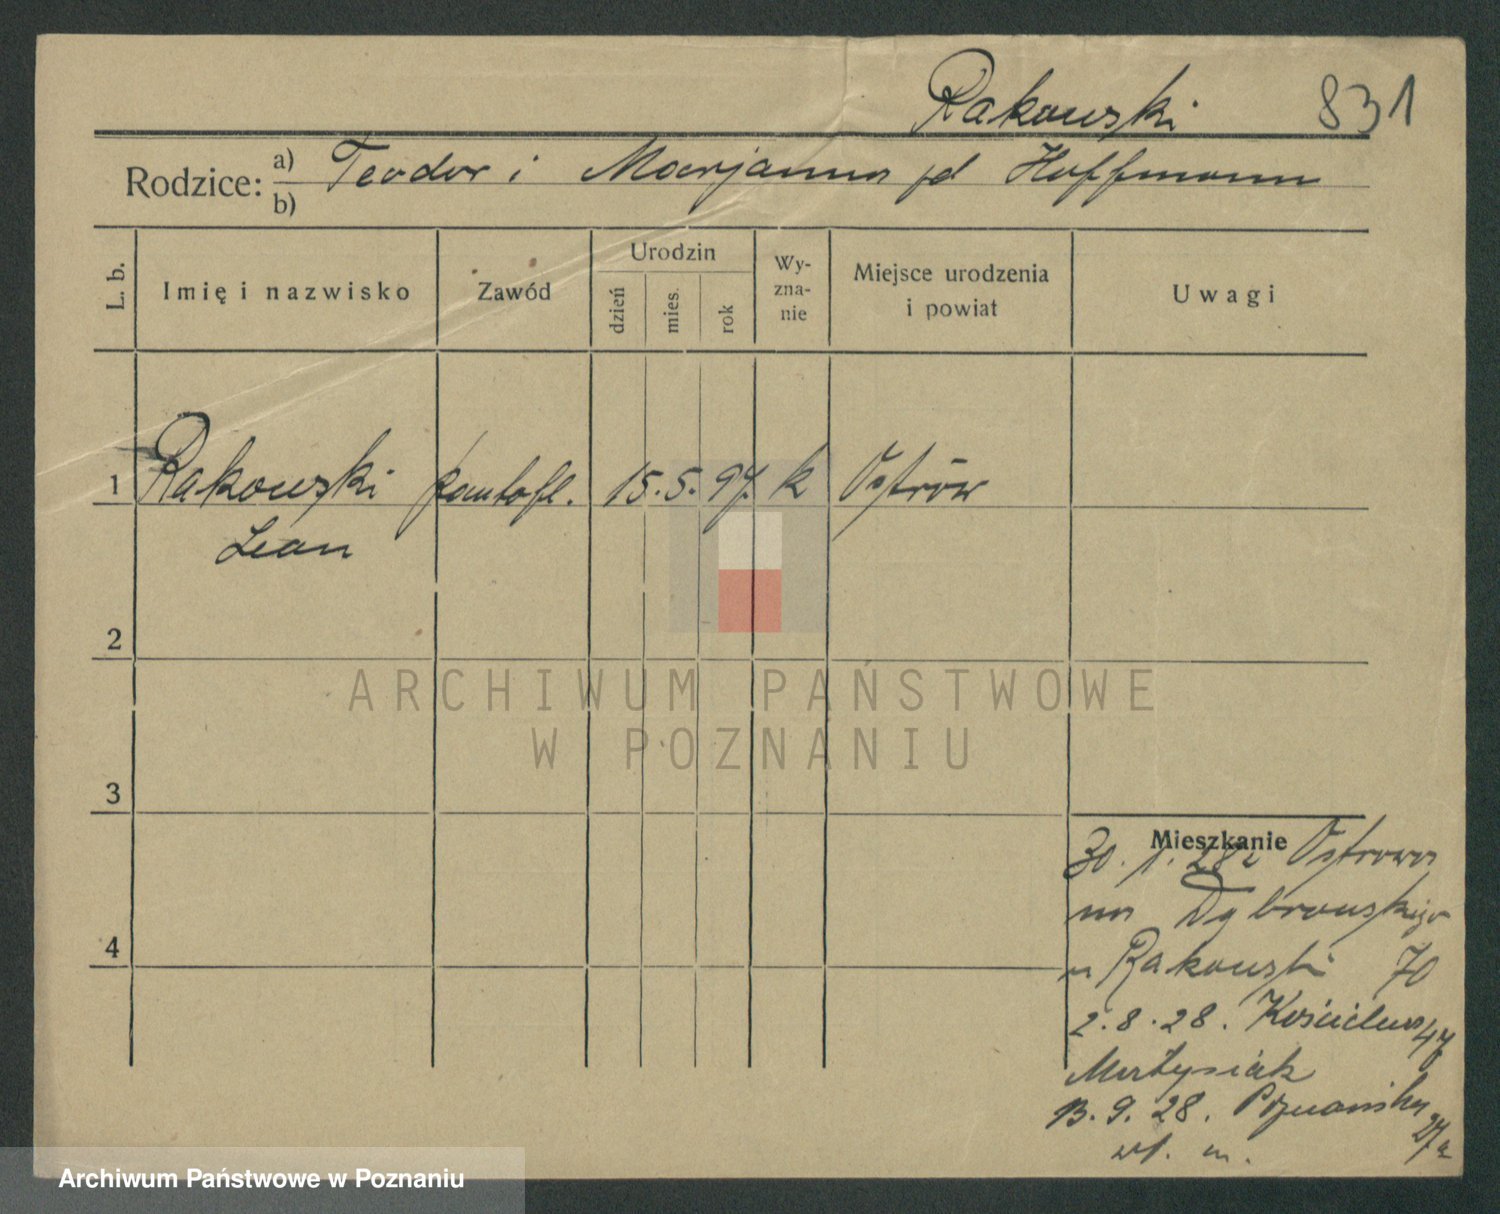 Rakowski 831
Rodzice: a) Teodor i Marjanna jd Hoffmann
b)
L. b. Imię i nazwisko Zawód Urodzin dzień mies. rok Wy-zna-nie Miejsce urodzenia i powiat Uwagi
1 Rakowski pantofl. 15. 5. 97. k Ostrów
Leon
2
ARCHIWUM PAŃSTWOWE
W POZNANIU
3
Mieszkanie
30. 1. 28 z Ostrowa
na Dąbrowskiego
u Rakowski 70
2. 8. 28. Kościelna 47
Matysiak
13. 9. 28. Poznańska 27a
wł. m.
4
Archiwum Państwowe w Poznaniu